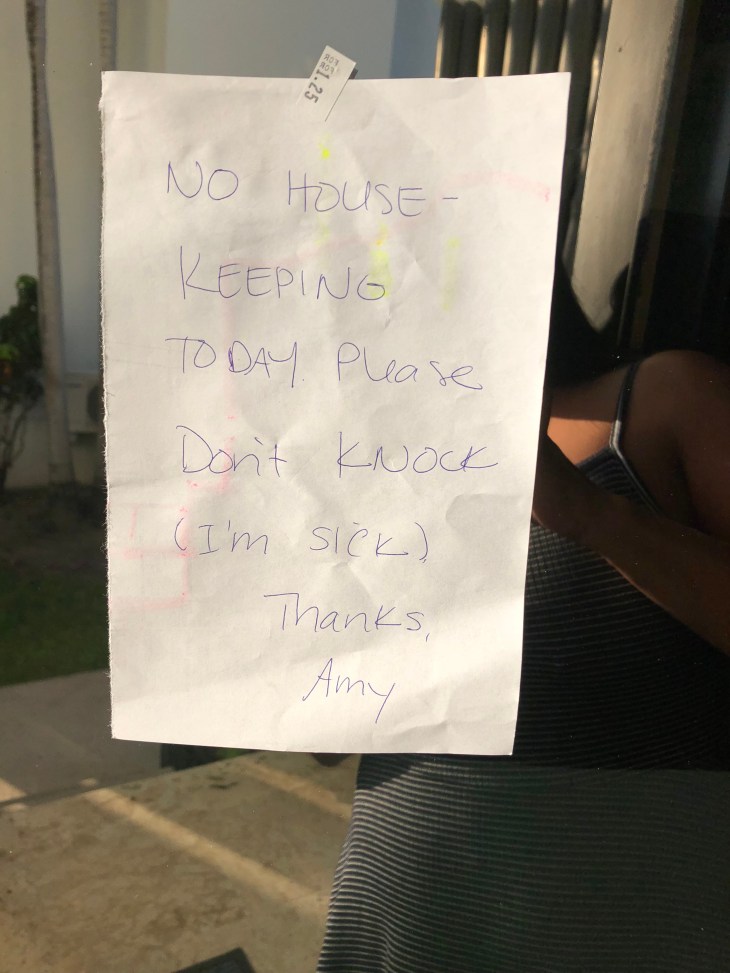 1.25
NO HOUSE-
KEEPING
TODAY. Please
Don't KNOCK
(I'm SICK)
Thanks,
Amy